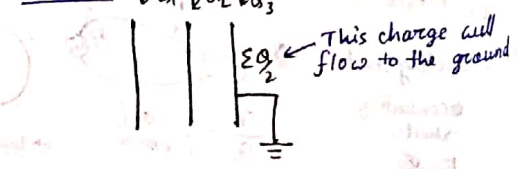 This charge will
ΣQ/2 flow to the ground